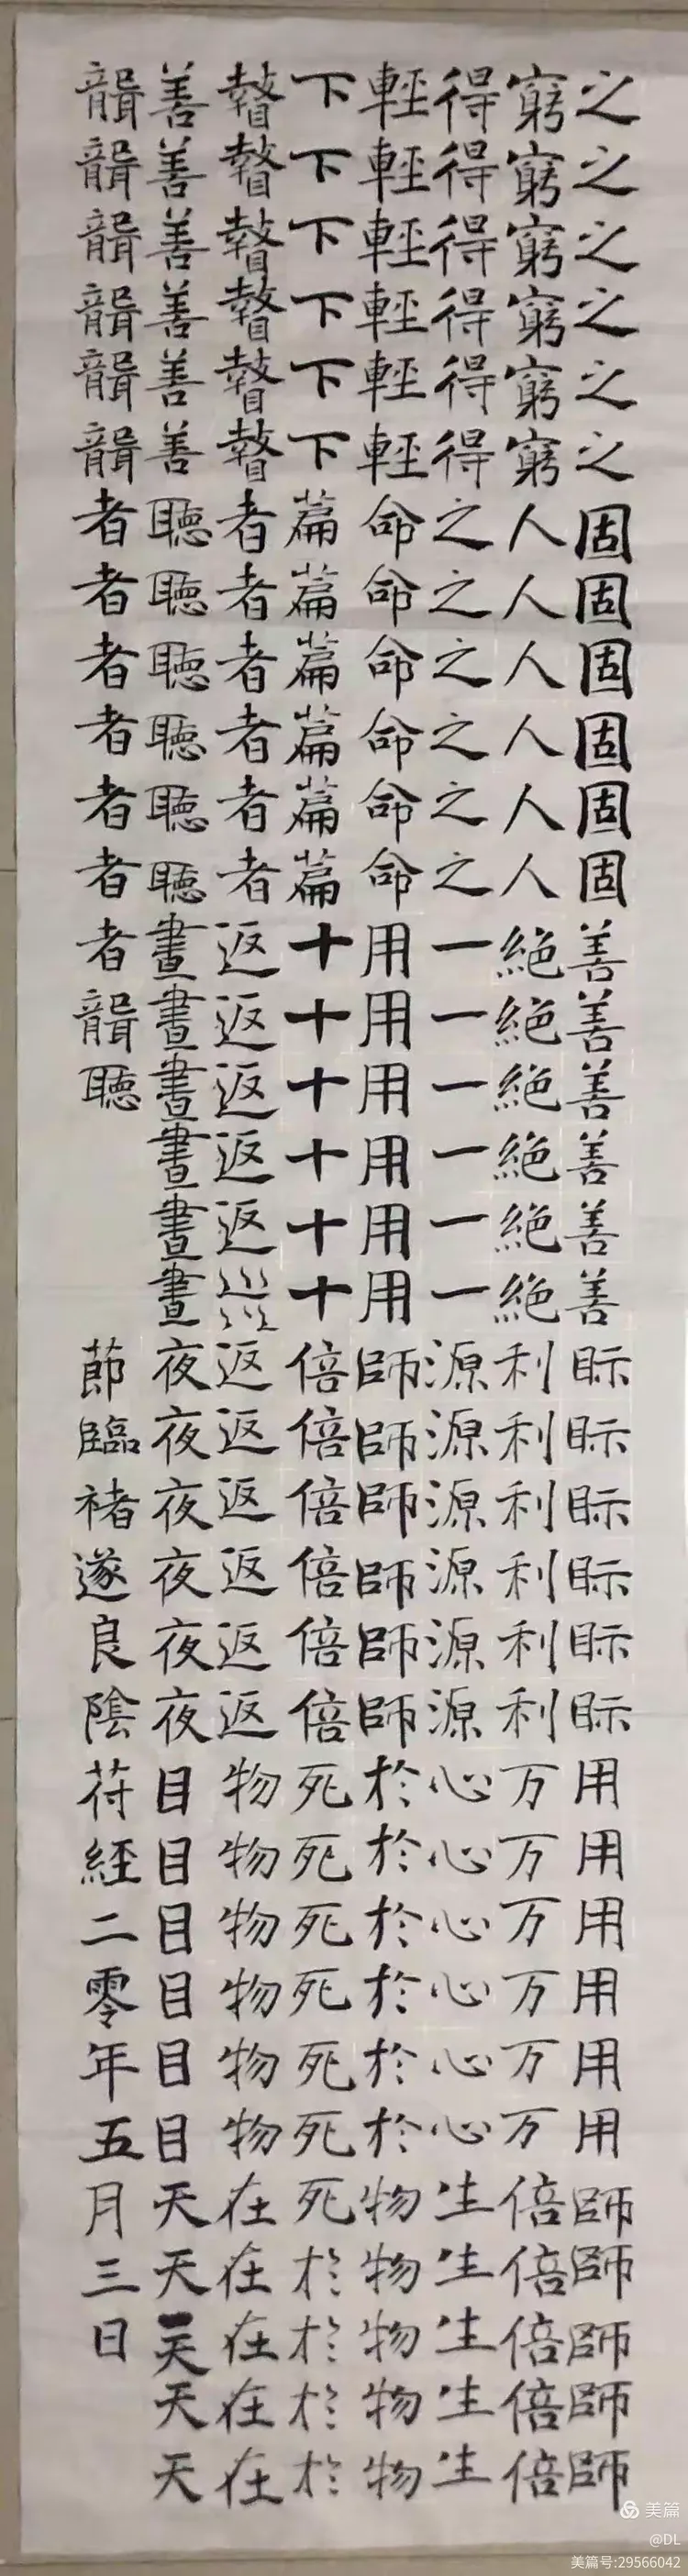 之之之之之之固固固固固固善善善善善善眎眎眎眎眎眎用用用用用用師師師師師
窮窮窮窮窮窮人人人人人人絶絶絶絶絶絶利利利利利利万万万万万万倍倍倍倍倍
得得得得得得之之之之之之一一一一一一源源源源源源心心心心心心生生生生生
輕輕輕輕輕輕命命命命命命用用用用用用師師師師師師於於於於於於物物物物物
下下下下下下篇篇篇篇篇篇十十十十十十倍倍倍倍倍倍死死死死死死死於於於於
瞽瞽瞽瞽瞽瞽者者者者者者返返返返返返返返返返返物物物物物物在在在在在
善善善善善善聽聽聽聽聽聽晝晝晝晝晝晝夜夜夜夜夜夜目目目目目目天天天天天
聾聾聾聾聾聾者者者者者者者聾聽
節臨褚遂良陰符經二零年五月三日
美篇
@DL
美篇号:29566042